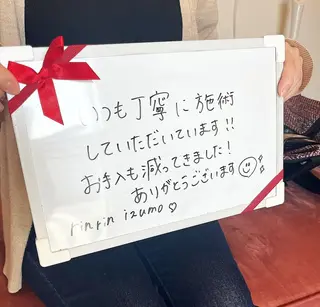 いつも丁寧に施術
していただいています!!
お手入も減ってきました!
ありがとうございます
rinrin izumo♡